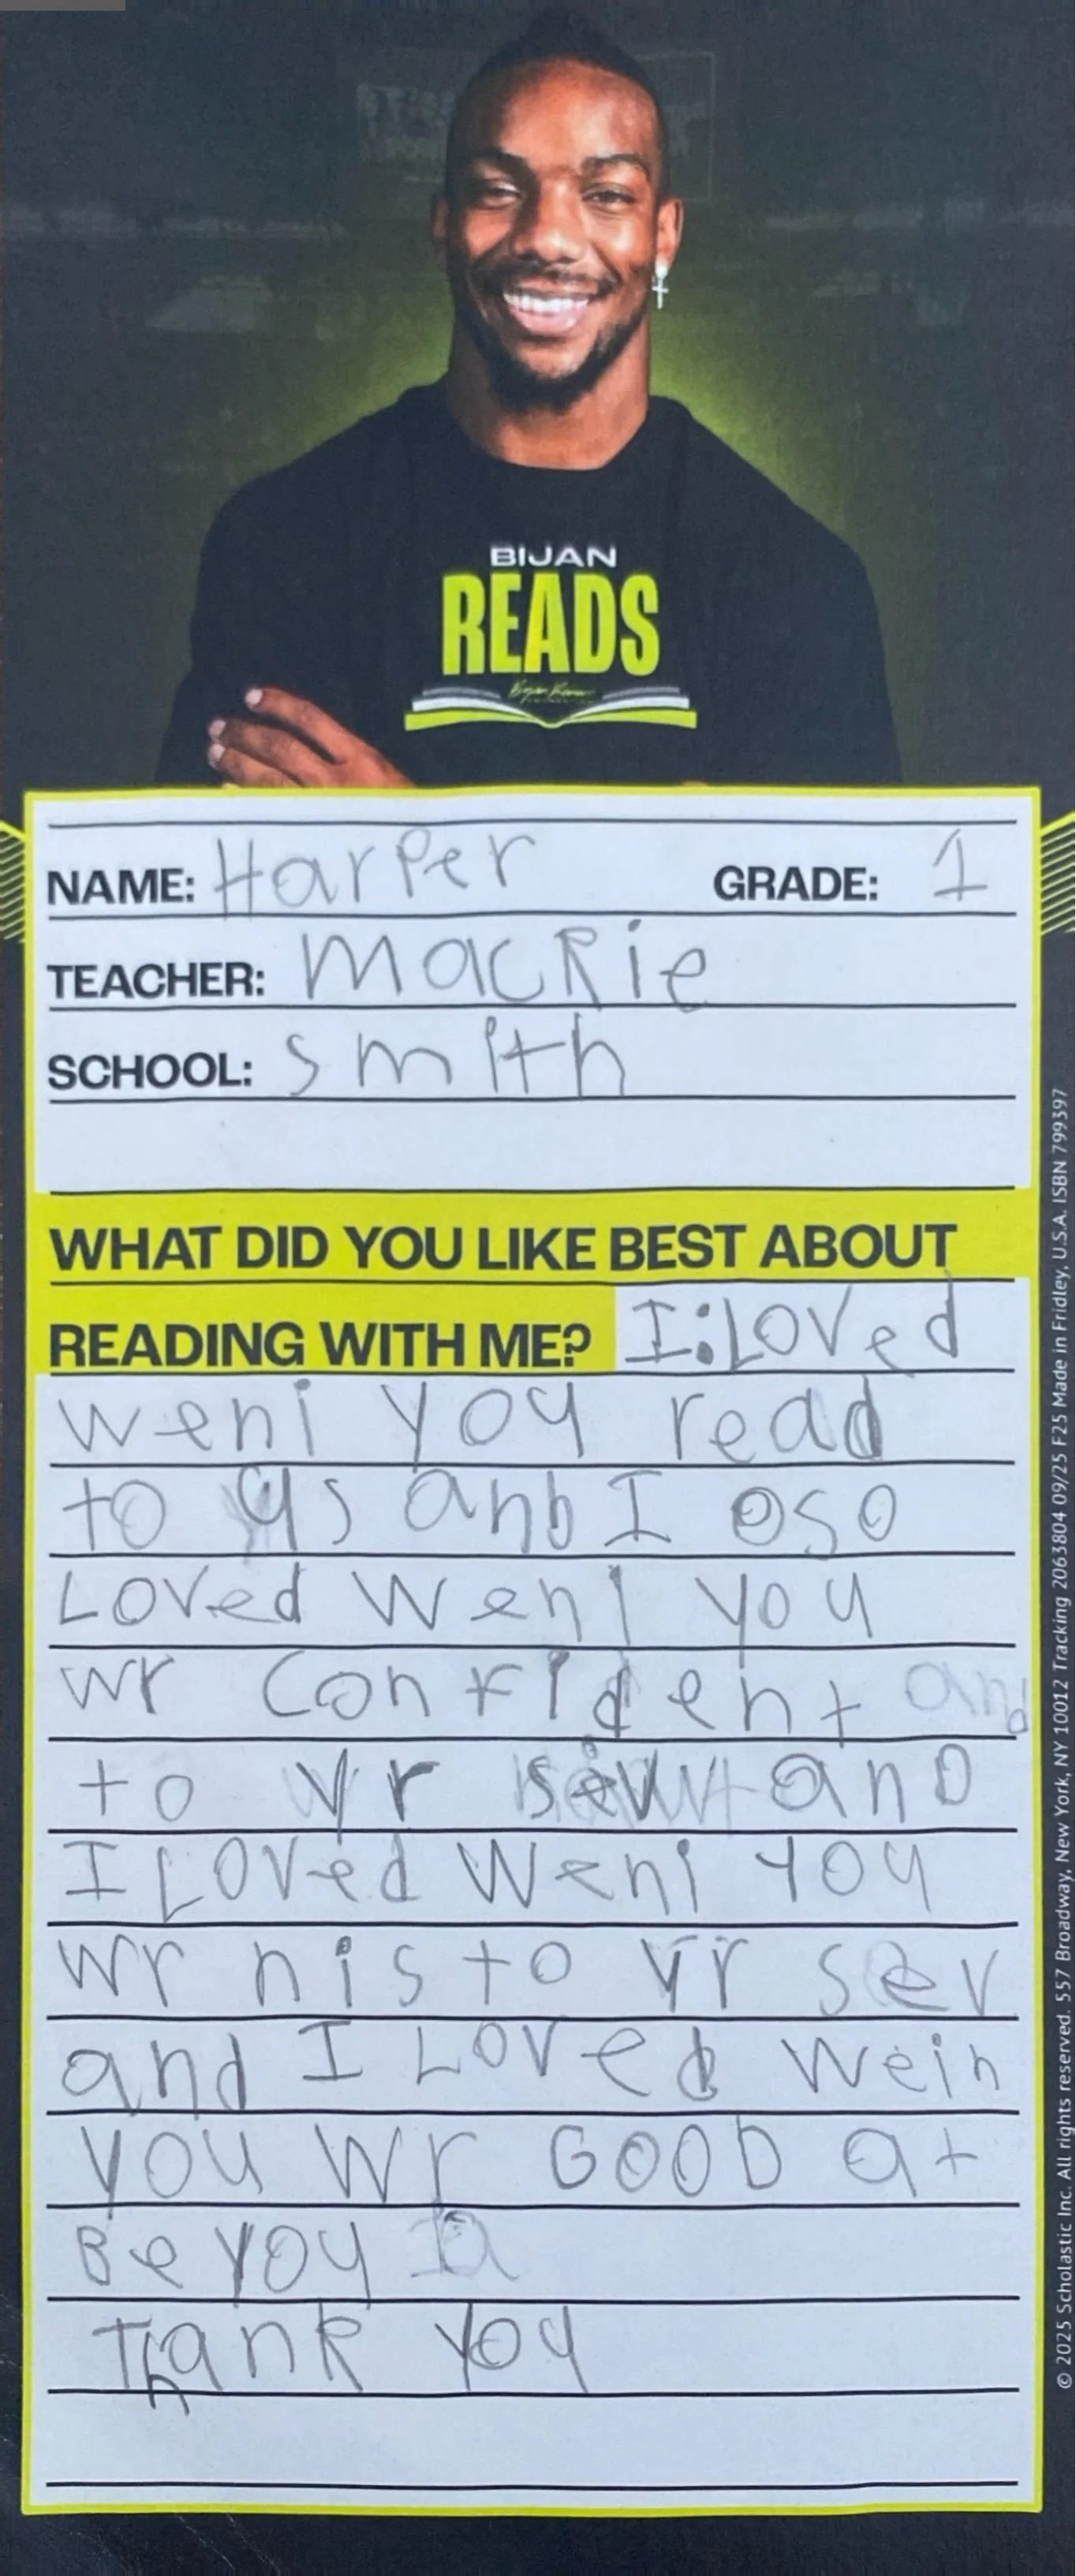 BIJAN
READS
NAME: Harper GRADE: 1
TEACHER: MacRie
SCHOOL: smith
WHAT DID YOU LIKE BEST ABOUT
READING WITH ME? I Loved
weni you read
to us anb I oso
Loved weni you
wr Confident and
to yr and
I Loved weni you
wr nis to yr sev
and I Loved wein
you wr GOOD at
Be you
Thank you
© 2025 Scholastic Inc. All rights reserved. 557 Broadway, New York, NY 10012 Tracking 2063804 09/25 F25 Made in Fridley, U.S.A. ISBN 799397